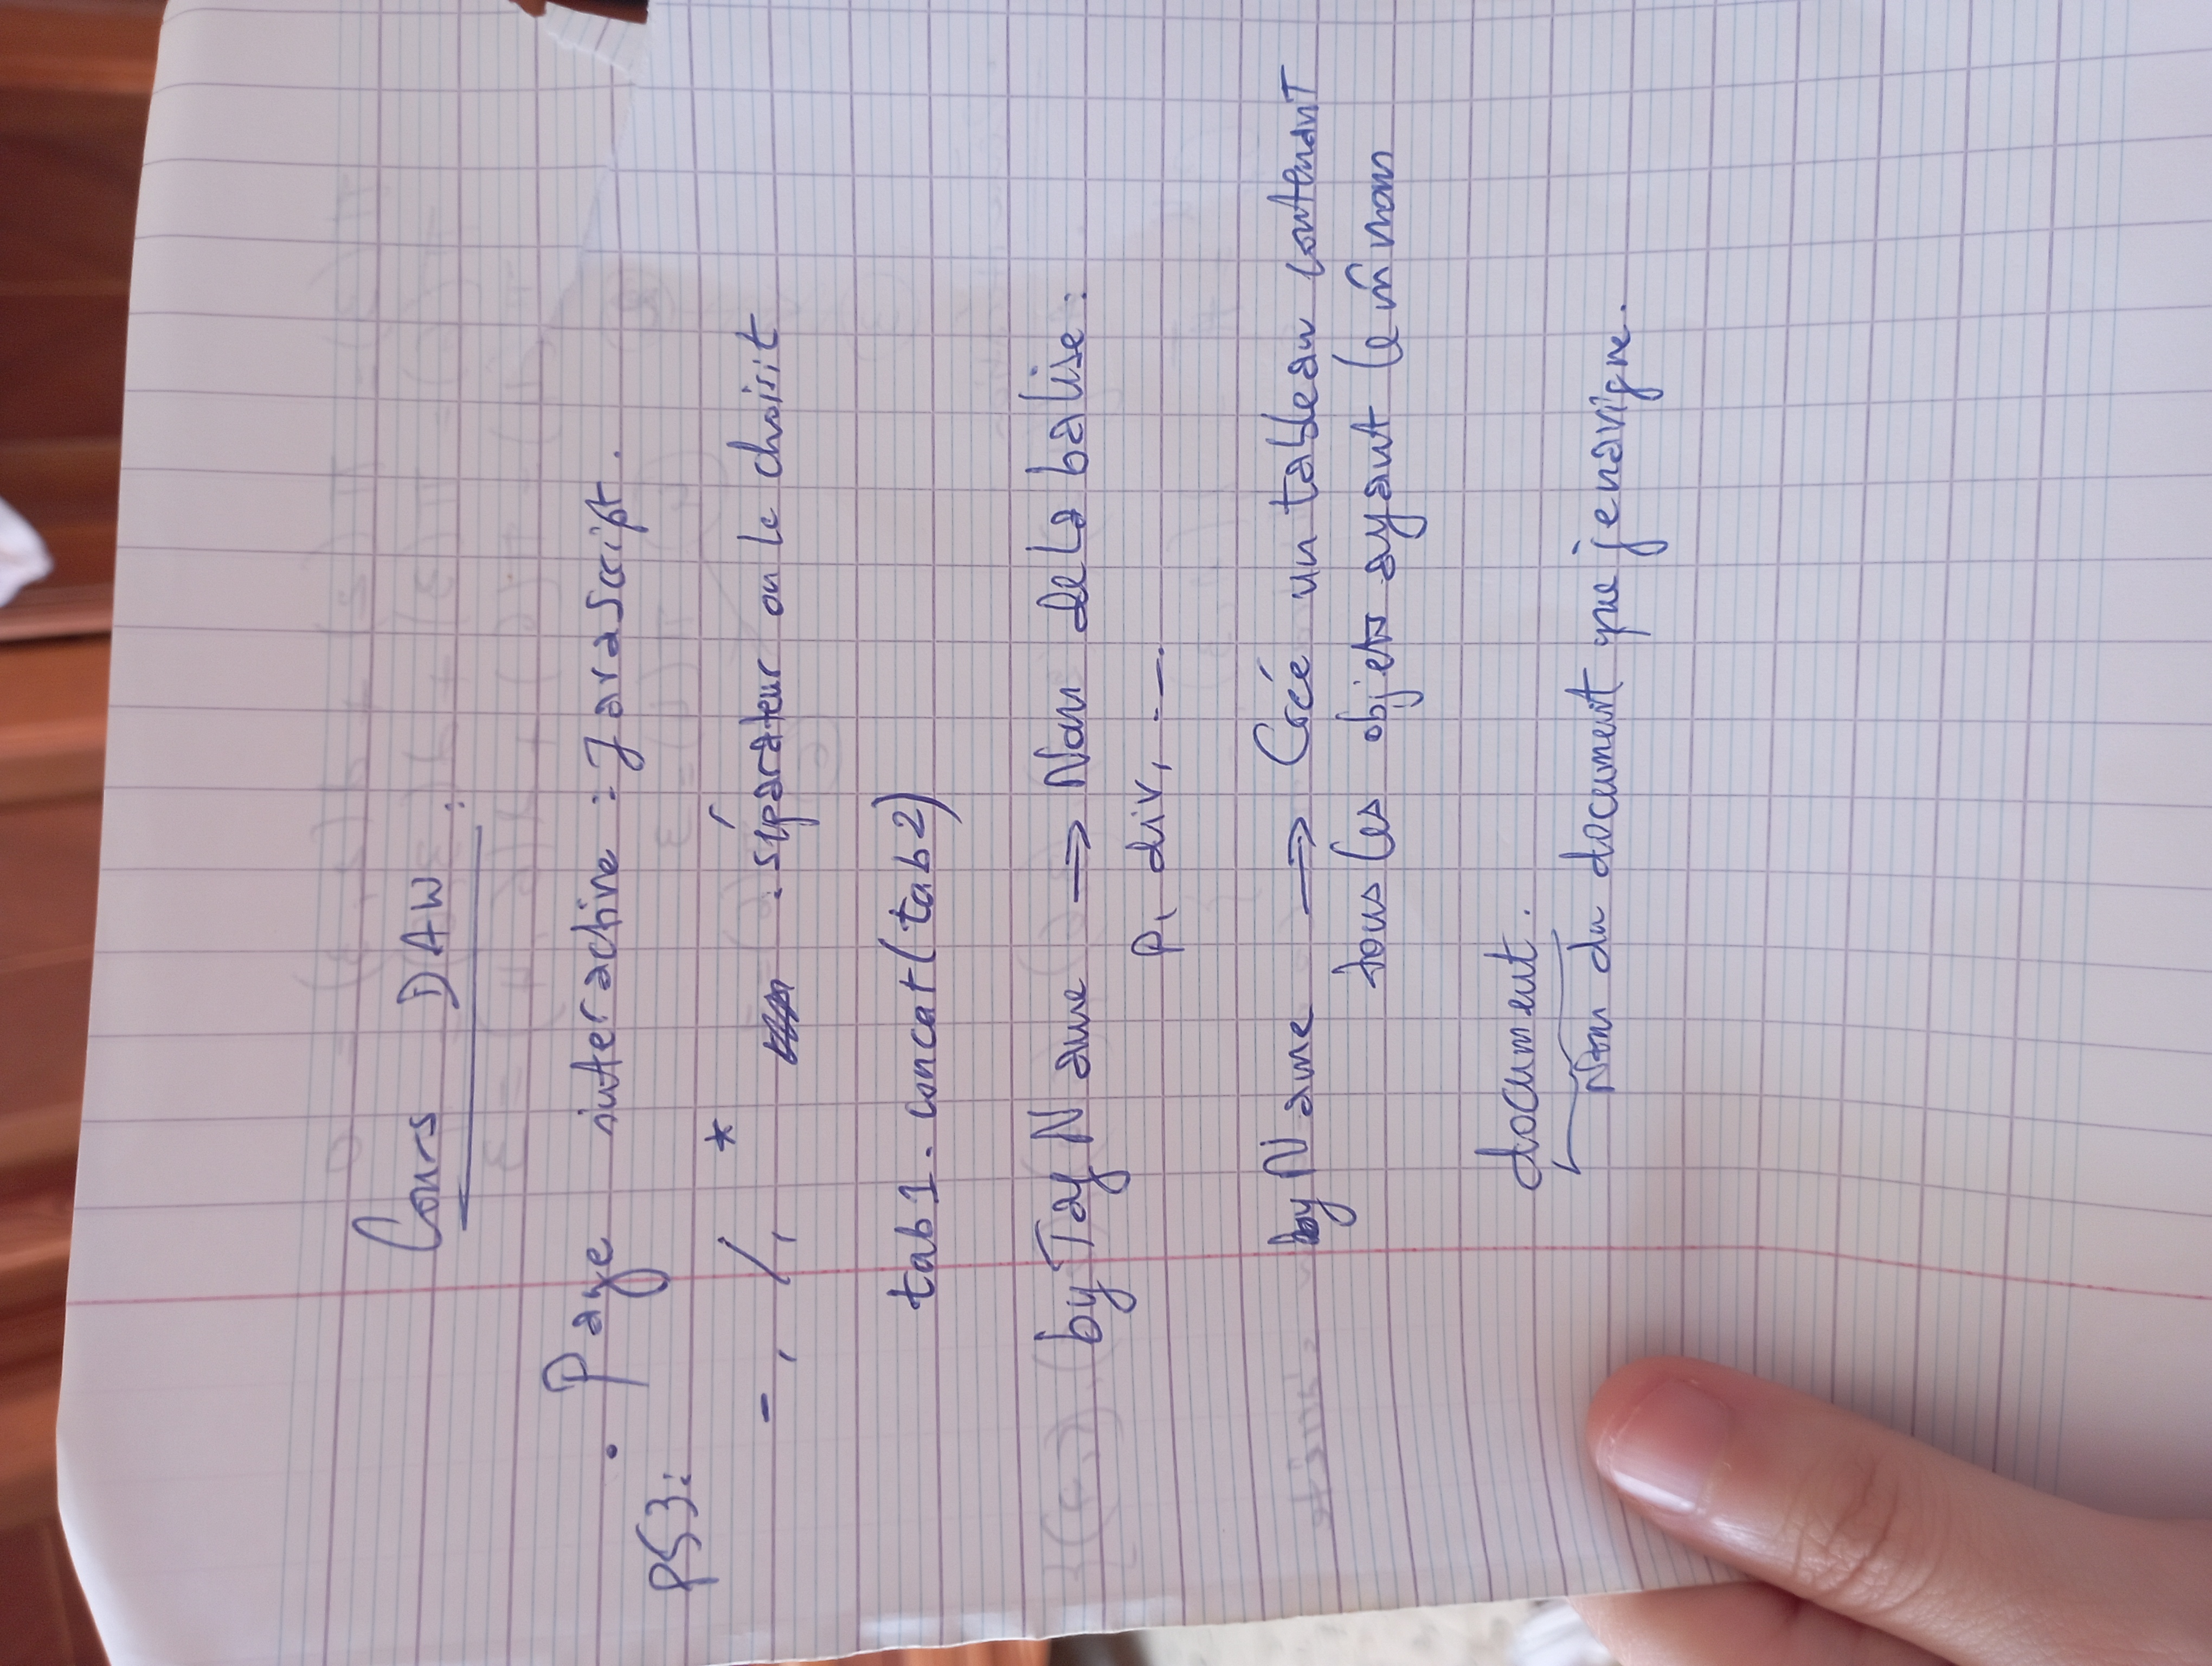 Cours DAW :
. Page interactive : JavaScript.
P53:
-, /, * . séparateur on le choisit
tab1. concat(tab2)
by TagName → Nom de la balise :
p, div, ....
by Name → Créé un tableau contenant
tous les objets ayant le m̂ nom
document.
Nom du document que je navigne.